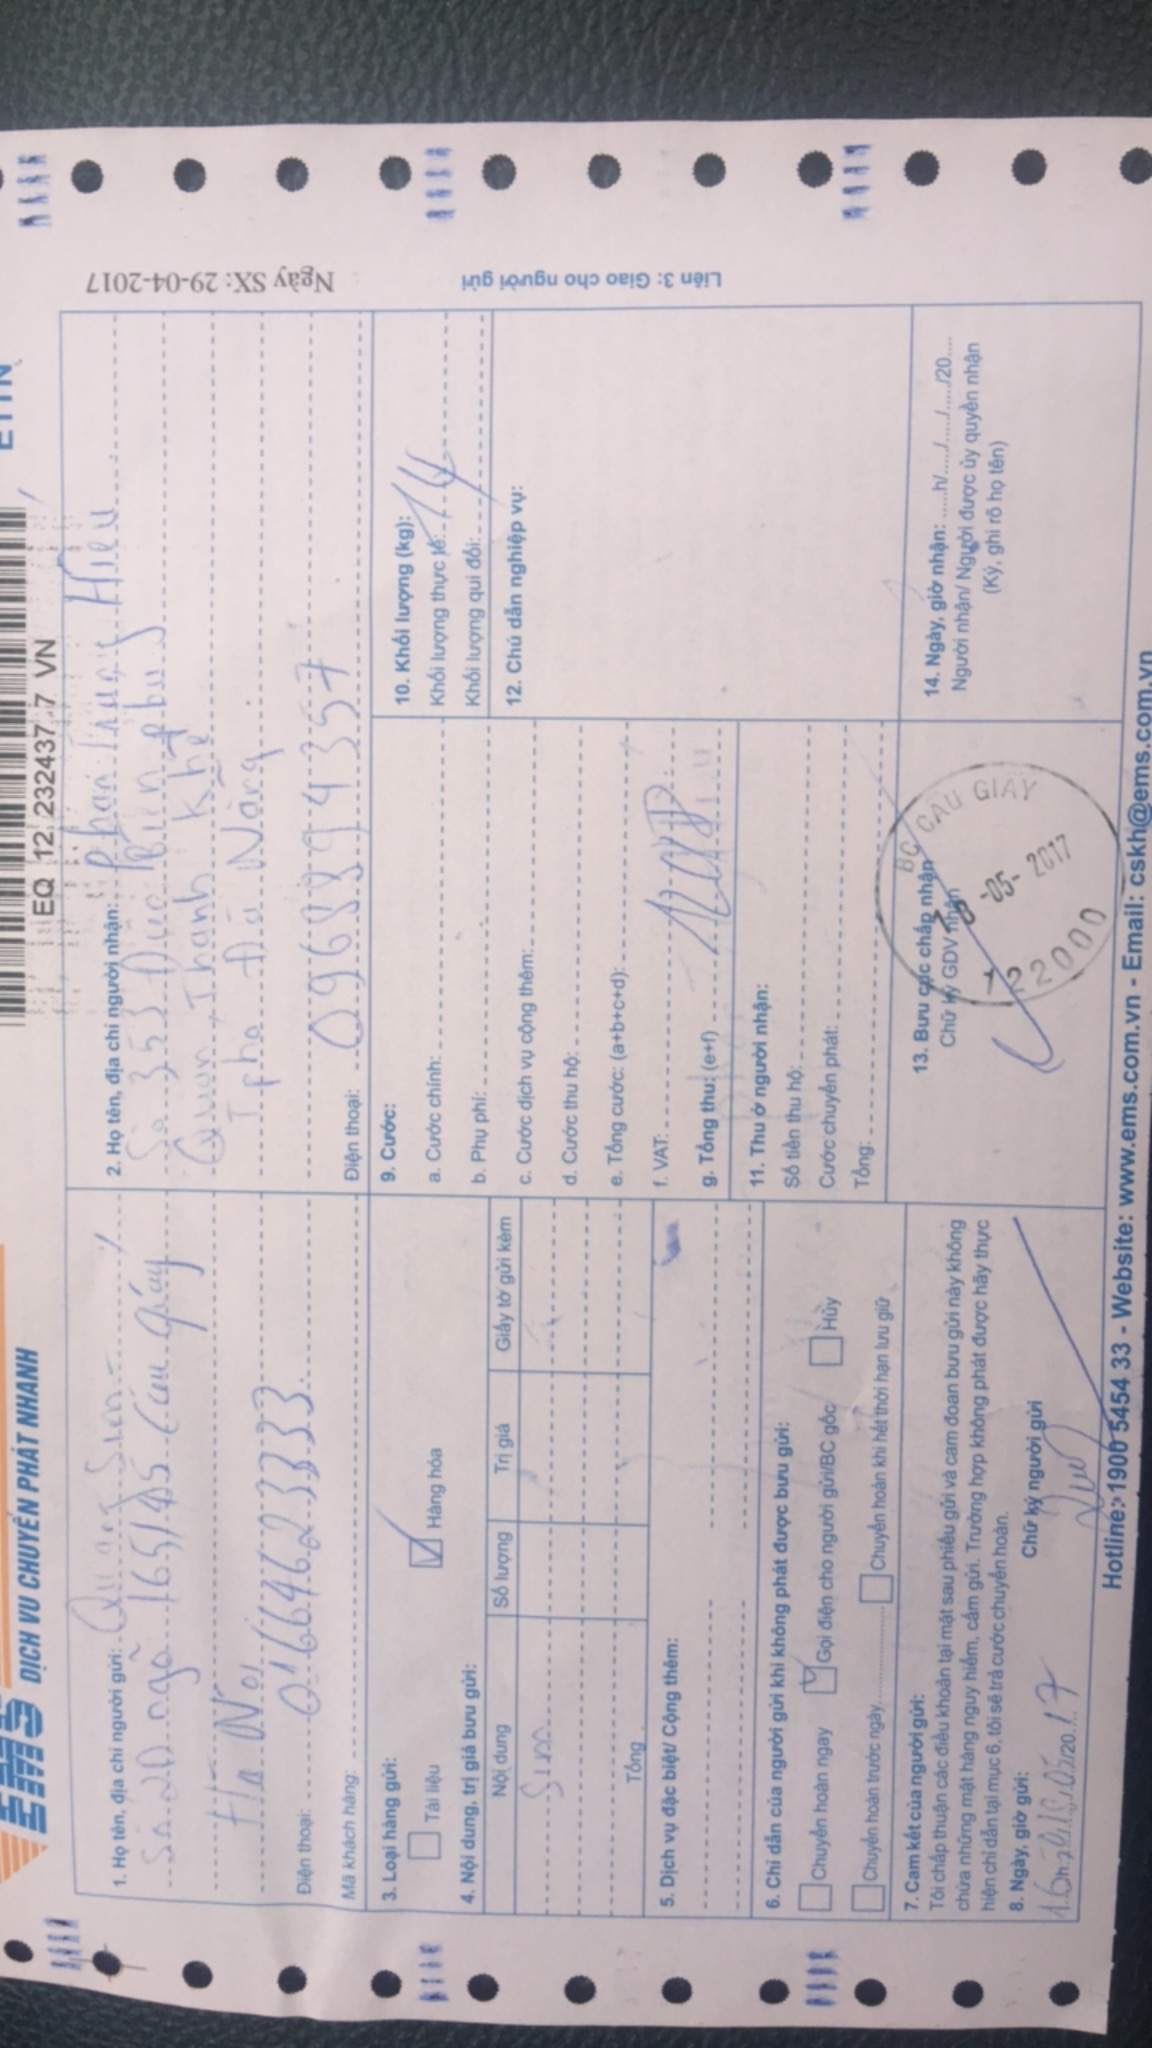 EMS DỊCH VỤ CHUYỂN PHÁT NHANH
EQ 12 232437 7 VN
1. Họ tên, địa chỉ người gửi: Quang Sim
Số 20 ngõ 165/45 Cầu Giấy
Hà Nội
Điện thoại: 01664623333
Mã khách hàng:
2. Họ tên, địa chỉ người nhận: Phan Trung Hiếu
Số 353 Điện Biên Phủ
Quận Thanh Khê
Tpho Đà Nẵng
Điện thoại: 0968894357
3. Loại hàng gửi:
Tài liệu
Hàng hóa
4. Nội dung, trị giá bưu gửi:
Nội dung Số lượng Trị giá Giấy tờ gửi kèm
Sim
Tổng
5. Dịch vụ đặc biệt/ Cộng thêm:
6. Chỉ dẫn của người gửi khi không phát được bưu gửi:
Chuyển hoàn ngay Gọi điện cho người gửi/BC gốc Hủy
Chuyển hoàn trước ngày Chuyển hoàn khi hết thời hạn lưu giữ
7. Cam kết của người gửi:
Tôi chấp thuận các điều khoản tại mặt sau phiếu gửi và cam đoan bưu gửi này không
chứa những mặt hàng nguy hiểm, cấm gửi. Trường hợp không phát được hãy thực
hiện chỉ dẫn tại mục 6, tôi sẽ trả cước chuyển hoàn.
8. Ngày, giờ gửi: Chữ ký người gửi
/2017
9. Cước:
a. Cước chính:
b. Phụ phí:
c. Cước dịch vụ cộng thêm:
d. Cước thu hộ:
e. Tổng cước: (a+b+c+d):
f. VAT:
g. Tổng thu: (e+f)
10. Khối lượng (kg):
Khối lượng thực tế:
Khối lượng qui đổi:
11. Thu ở người nhận:
Số tiền thu hộ:
Cước chuyển phát:
Tổng:
12. Chú dẫn nghiệp vụ:
13. Bưu cục chấp nhận
Chữ ký GDV nhận
BC CẦU GIẤY
-05- 2017
122000
14. Ngày, giờ nhận: .....h/...../...../20....
Người nhận/ Người được ủy quyền nhận
(Ký, ghi rõ họ tên)
Hotline: 1900 5454 33 - Website: www.ems.com.vn - Email: cskh@ems.com.vn
Liên 3: Giao cho người gửi
Ngày SX: 29-04-2017